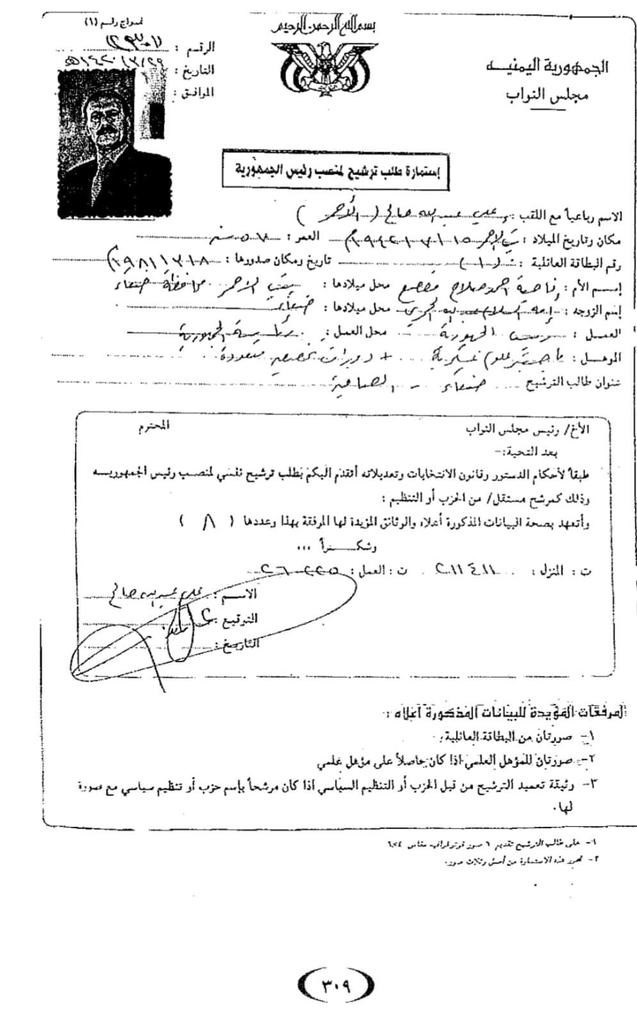 نموذج رقم (١)
بسم الله الرحمن الرحيم
الجمهورية اليمنية
مجلس النواب
الرقم :
التاريخ : ١٤٢٠/٣/٢٩هـ
الموافق :
إستمارة طلب ترشيح لمنصب رئيس الجمهورية
الاسم رباعياً مع اللقب : علي عبدالله صالح ( الأحمر )
مكان وتاريخ الميلاد : بيت الأحمر العمر : ٥٧ سنة
رقم البطاقة العائلية : (١٠) تاريخ ومكان صدورها :
إسم الأم : محل ميلادها : بيت الأحمر محافظة صنعاء
إسم الزوجه : محل ميلادها : صنعاء
العمل : رئيس الجمهورية محل العمل : رئاسة الجمهورية
المؤهل : ماجستير علوم عسكرية + دورات متعددة
عنوان طالب الترشيح : صنعاء -
الأخ/ رئيس مجلس النواب المحترم
بعد التحية:-
طبقاً لأحكام الدستور وقانون الانتخابات وتعديلاته أتقدم اليكم بطلب ترشيح نفسي لمنصب رئيس الجمهوريه
وذلك كمرشح مستقل/ من الحزب أو التنظيم :
وأتعهد بصحة البيانات المذكورة أعلاه والوثائق المؤيدة لها المرفقة بهذا وعددها ( ٨ )
وشكراً ...
ت : المنزل : ٢١١٤١١ ت : العمل :
الاسم : علي عبدالله صالح
التوقيع :
التاريخ :
المرفقات المؤيدة للبيانات المذكورة أعلاه :
١- صورتان من البطاقة العائلية:
٢- صورتان للمؤهل العلمي اذا كان حاصلاً على مؤهل علمي
٣- وثيقة تعميد الترشيح من قبل الحزب أو التنظيم السياسي اذا كان مرشحاً بإسم حزب أو تنظيم سياسي مع صورة
لها.
١- على طالب الترشيح تقديم ٦ صور فوتوغرافية مقاس ٤×٦
٢- تحرر هذه الاستمارة من أصل وثلاث صور.
٣٠٩